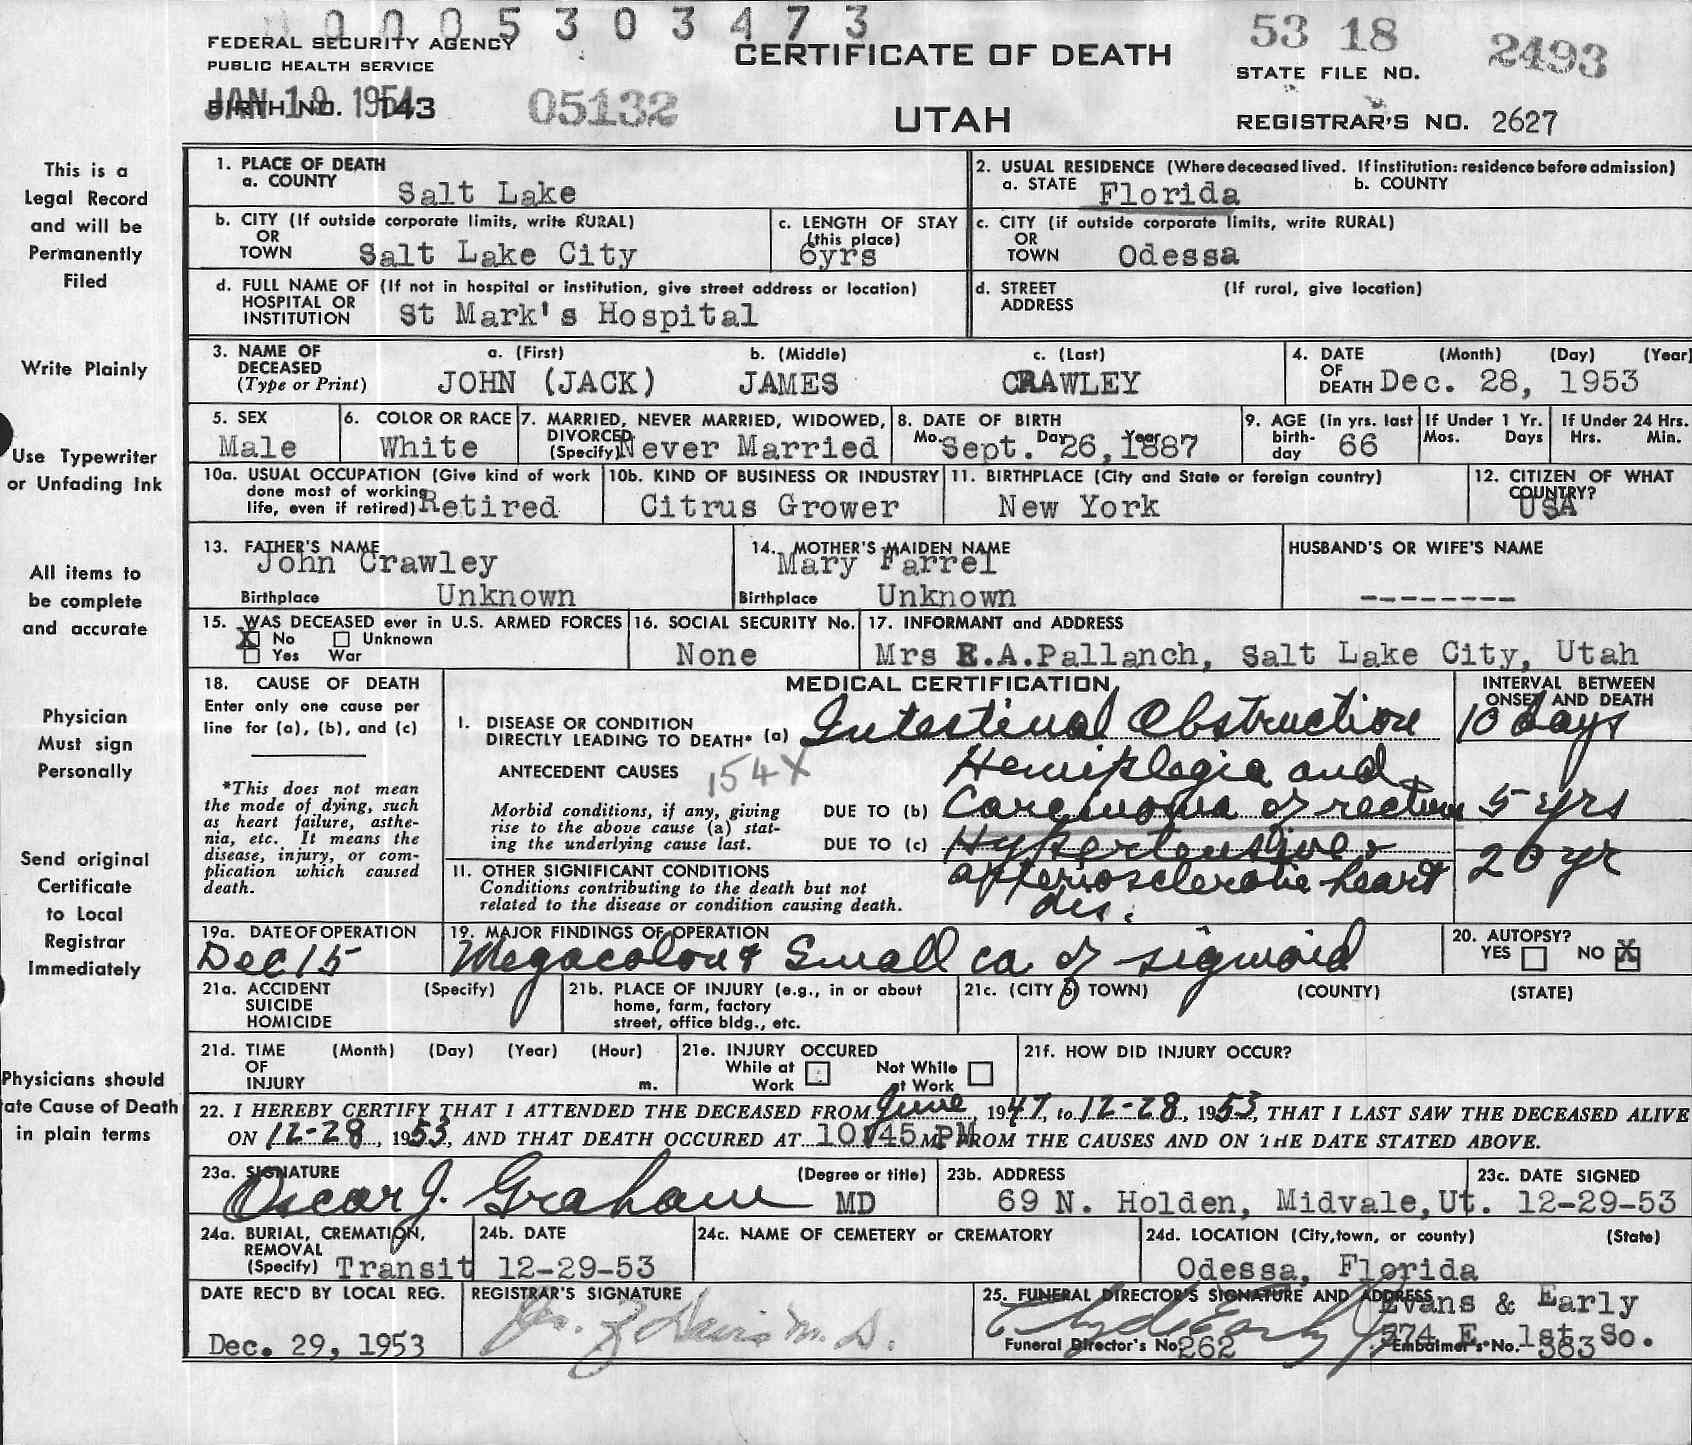 0005303473
FEDERAL SECURITY AGENCY
PUBLIC HEALTH SERVICE
CERTIFICATE OF DEATH
53 18
STATE FILE NO.
2493
JAN 19 1954
BIRTH NO. 143
05132
UTAH
REGISTRAR'S NO. 2627
This is a
Legal Record
and will be
Permanently
Filed
Write Plainly
Use Typewriter
or Unfading Ink
All items to
be complete
and accurate
Physician
Must sign
Personally
Send original
Certificate
to Local
Registrar
Immediately
Physicians should
ate Cause of Death
in plain terms
1. PLACE OF DEATH
a. COUNTY Salt Lake
2. USUAL RESIDENCE (Where deceased lived. If institution: residence before admission)
a. STATE Florida b. COUNTY
b. CITY (If outside corporate limits, write RURAL)
OR
TOWN Salt Lake City
c. LENGTH OF STAY
(this place)
6yrs
c. CITY (if outside corporate limits, write RURAL)
OR
TOWN Odessa
d. FULL NAME OF (If not in hospital or institution, give street address or location)
HOSPITAL OR
INSTITUTION St Mark's Hospital
d. STREET (If rural, give location)
ADDRESS
3. NAME OF
DECEASED
(Type or Print)
a. (First) b. (Middle) c. (Last)
JOHN (JACK) JAMES CRAWLEY
4. DATE (Month) (Day) (Year)
OF
DEATH Dec. 28, 1953
5. SEX
Male
6. COLOR OR RACE
White
7. MARRIED, NEVER MARRIED, WIDOWED,
DIVORCED
(Specify) Never Married
8. DATE OF BIRTH
Mo. Day Year
Sept. 26, 1887
9. AGE (in yrs. last
birth-
day 66
If Under 1 Yr.
Mos. Days
If Under 24 Hrs.
Hrs. Min.
10a. USUAL OCCUPATION (Give kind of work
done most of working
life, even if retired) Retired
10b. KIND OF BUSINESS OR INDUSTRY
Citrus Grower
11. BIRTHPLACE (City and State or foreign country)
New York
12. CITIZEN OF WHAT
COUNTRY?
USA
13. FATHER'S NAME
John Crawley
Birthplace Unknown
14. MOTHER'S MAIDEN NAME
Mary Farrel
Birthplace Unknown
HUSBAND'S OR WIFE'S NAME
--------
15. WAS DECEASED ever in U.S. ARMED FORCES
X No Unknown
Yes War
16. SOCIAL SECURITY No.
None
17. INFORMANT and ADDRESS
Mrs E.A.Pallanch, Salt Lake City, Utah
18. CAUSE OF DEATH
Enter only one cause per
line for (a), (b), and (c)
*This does not mean
the mode of dying, such
as heart failure, asthe-
nia, etc. It means the
disease, injury, or com-
plication which caused
death.
MEDICAL CERTIFICATION
INTERVAL BETWEEN
ONSET AND DEATH
I. DISEASE OR CONDITION
DIRECTLY LEADING TO DEATH* (a) Intestinal Obstruction 10 days
ANTECEDENT CAUSES 154X
Hemiplegia and
Morbid conditions, if any, giving
rise to the above cause (a) stat-
ing the underlying cause last.
DUE TO (b) Carcinoma of rectum 5 yrs
DUE TO (c) Hypertensive & 20 yr
arteriosclerotic heart
dis.
11. OTHER SIGNIFICANT CONDITIONS
Conditions contributing to the death but not
related to the disease or condition causing death.
19a. DATE OF OPERATION
Dec 15
19. MAJOR FINDINGS OF OPERATION
Megacolon & Small ca of sigmoid
20. AUTOPSY?
YES NO X
21a. ACCIDENT (Specify)
SUICIDE
HOMICIDE
21b. PLACE OF INJURY (e.g., in or about
home, farm, factory
street, office bldg., etc.
21c. (CITY or TOWN) (COUNTY) (STATE)
21d. TIME (Month) (Day) (Year) (Hour)
OF
INJURY m.
21e. INJURY OCCURED
While at Not While
Work at Work
21f. HOW DID INJURY OCCUR?
22. I HEREBY CERTIFY THAT I ATTENDED THE DECEASED FROM June, 1947, to 12-28, 1953, THAT I LAST SAW THE DECEASED ALIVE
ON 12-28, 1953, AND THAT DEATH OCCURED AT 10:45 PM M. FROM THE CAUSES AND ON THE DATE STATED ABOVE.
23a. SIGNATURE (Degree or title)
Oscar J. Graham MD
23b. ADDRESS
69 N. Holden, Midvale, Ut.
23c. DATE SIGNED
12-29-53
24a. BURIAL, CREMATION,
REMOVAL
(Specify) Transit
24b. DATE
12-29-53
24c. NAME OF CEMETERY OR CREMATORY
24d. LOCATION (City, town, or county) (State)
Odessa, Florida
DATE REC'D BY LOCAL REG.
Dec. 29, 1953
REGISTRAR'S SIGNATURE
M.D.
25. FUNERAL DIRECTOR'S SIGNATURE AND ADDRESS
Evans & Early
574 E. 1st So.
Funeral Director's No. 262
Embalmer's No. 363